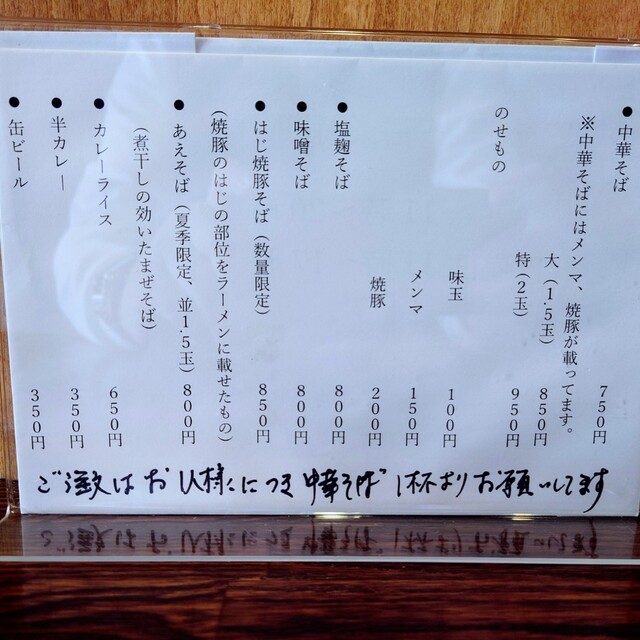 ●中華そば 750円
※中華そばにはメンマ、焼豚が載ってます。
大(1.5玉) 850円
特(2玉) 950円
のせもの
味玉 100円
メンマ 150円
焼豚 200円
●塩麹そば 800円
●味噌そば 800円
●はじ焼豚そば(数量限定) 850円
(焼豚のはじの部位をラーメンに載せたもの)
●あえそば(夏季限定、並1.5玉) 800円
(煮干しの効いたまぜそば)
●カレーライス 650円
●半カレー 350円
●缶ビール 350円
ご注文はお一人様につき中華そば1杯よりお願いしてます